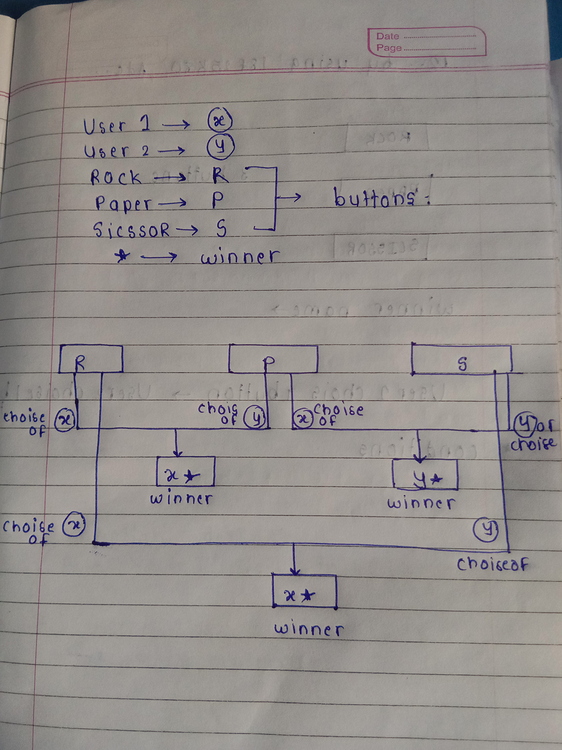 Date
Page
User 1 → x
User 2 → y
Rock → R
Paper → P
SicssoR → S
buttons:
★ → winner
R
P
S
choise of x
chois of y
x choise of
y of choise
x★
winner
y★
winner
choise of x
y
choiseof
x★
winner